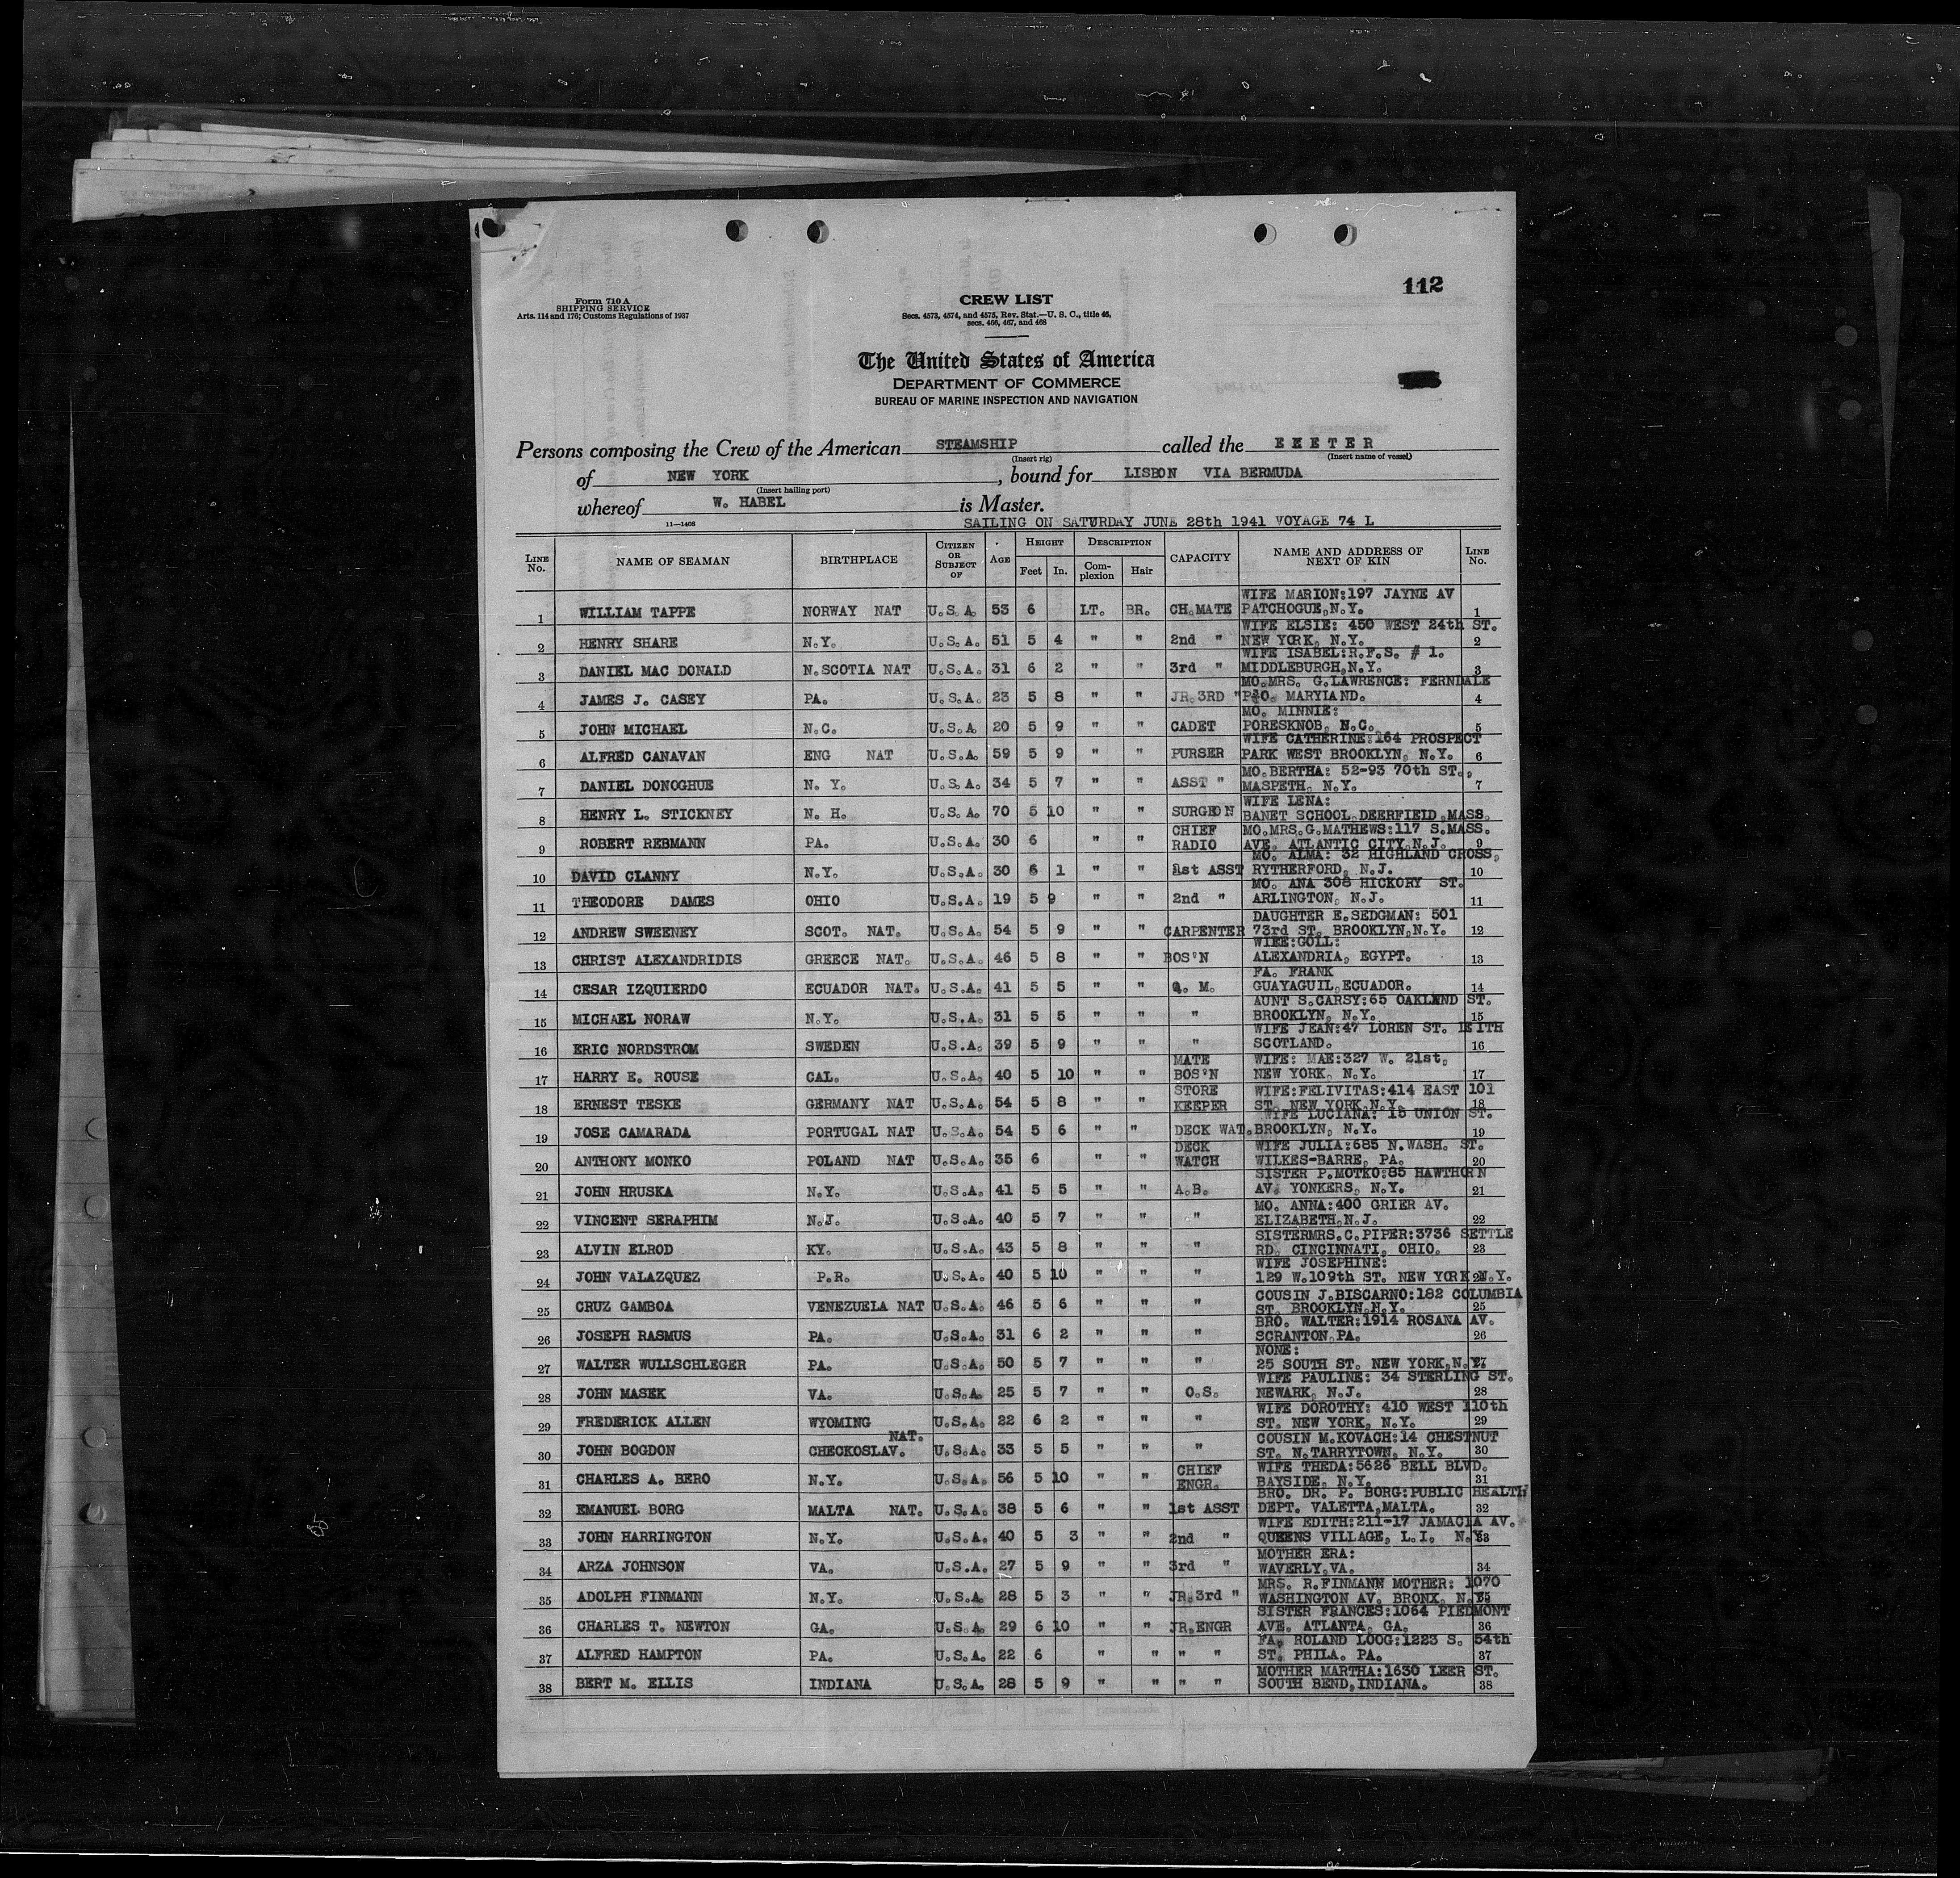 112
Form 710 A
SHIPPING SERVICE
Arts. 114 and 176; Customs Regulations of 1937
CREW LIST
Secs. 4573, 4574, and 4575, Rev. Stat.—U. S. C., title 46,
secs. 466, 467, and 468
The United States of America
DEPARTMENT OF COMMERCE
BUREAU OF MARINE INSPECTION AND NAVIGATION
Persons composing the Crew of the American STEAMSHIP called the E X E T E R
(Insert rig) (Insert name of vessel)
of NEW YORK, bound for LISBON VIA BERMUDA
(Insert hailing port)
whereof W. HABEL is Master.
11—1408
SAILING ON SATURDAY JUNE 28th 1941 VOYAGE 74 L
LINE No. NAME OF SEAMAN BIRTHPLACE CITIZEN OR SUBJECT OF AGE HEIGHT Feet In. DESCRIPTION Complexion Hair CAPACITY NAME AND ADDRESS OF NEXT OF KIN LINE No.
WIFE MARION:197 JAYNE AV
1 WILLIAM TAPPE NORWAY NAT U.S.A. 53 6 LT. BR. CH.MATE PATCHOGUE,N.Y. 1
WIFE ELSIE: 450 WEST 24th ST.
2 HENRY SHARE N.Y. U.S.A. 51 5 4 " " 2nd " NEW YORK, N.Y. 2
WIFE ISABEL:R.F.S. # 1.
3 DANIEL MAC DONALD N.SCOTIA NAT U.S.A. 31 6 2 " " 3rd " MIDDLEBURGH,N.Y. 3
MO.MRS. G.LAWRENCE: FERNDALE
4 JAMES J. CASEY PA. U.S.A. 23 5 8 " " JR.3RD " P.O. MARYLAND. 4
MO. MINNIE:
5 JOHN MICHAEL N.C. U.S.A. 20 5 9 " " CADET PORESKNOB, N.C. 5
WIFE CATHERINE:164 PROSPECT
6 ALFRED CANAVAN ENG NAT U.S.A. 59 5 9 " " PURSER PARK WEST BROOKLYN, N.Y. 6
MO.BERTHA: 52-93 70th ST.,
7 DANIEL DONOGHUE N. Y. U.S.A. 34 5 7 " " ASST " MASPETH, N.Y. 7
WIFE LENA:
8 HENRY L. STICKNEY N. H. U.S.A. 70 5 10 " " SURGEON BANET SCHOOL,DEERFIELD,MASS.
CHIEF MO.MRS.G.MATHEWS:117 S.MASS.
9 ROBERT REBMANN PA. U.S.A. 30 6 " " RADIO AVE. ATLANTIC CITY,N.J. 9
MO. ALMA: 32 HIGHLAND CROSS,
10 DAVID CLANNY N.Y. U.S.A. 30 6 1 " " 1st ASST RYTHERFORD, N.J. 10
MO. ANA 308 HICKORY ST.
11 THEODORE DAMES OHIO U.S.A. 19 5 9 " " 2nd " ARLINGTON, N.J. 11
DAUGHTER E.SEDGMAN: 501
12 ANDREW SWEENEY SCOT. NAT. U.S.A. 54 5 9 " " CARPENTER 73rd ST. BROOKLYN,N.Y. 12
WIFE:GOLL:
13 CHRIST ALEXANDRIDIS GREECE NAT. U.S.A. 46 5 8 " " BOS'N ALEXANDRIA, EGYPT. 13
FA. FRANK
14 CESAR IZQUIERDO ECUADOR NAT. U.S.A. 41 5 5 " " Q. M. GUAYAGUIL,ECUADOR. 14
AUNT S.CARSY:65 OAKLAND ST.
15 MICHAEL NORAW N.Y. U.S.A. 31 5 5 " " " BROOKLYN, N.Y. 15
WIFE JEAN:47 LOREN ST. LEITH
16 ERIC NORDSTROM SWEDEN U.S.A. 39 5 9 " " " SCOTLAND. 16
MATE WIFE: MAE:327 W. 21st,
17 HARRY E. ROUSE CAL. U.S.A. 40 5 10 " " BOS'N NEW YORK, N.Y. 17
STORE WIFE:FELIVITAS:414 EAST 101
18 ERNEST TESKE GERMANY NAT U.S.A. 54 5 8 " " KEEPER ST. NEW YORK,N.Y. 18
WIFE LUCIANA: 15 UNION ST.
19 JOSE CAMARADA PORTUGAL NAT U.S.A. 54 5 6 " " DECK WAT. BROOKLYN, N.Y. 19
DECK WIFE JULIA:685 N.WASH. ST.
20 ANTHONY MONKO POLAND NAT U.S.A. 35 6 " " WATCH WILKES-BARRE, PA. 20
SISTER P.MOTKO:85 HAWTHORN
21 JOHN HRUSKA N.Y. U.S.A. 41 5 5 " " A.B. AV. YONKERS, N.Y. 21
MO. ANNA:400 GRIER AV.
22 VINCENT SERAPHIM N.J. U.S.A. 40 5 7 " " " ELIZABETH,N.J. 22
SISTERMRS.C.PIPER:3736 SETTLE
23 ALVIN ELROD KY. U.S.A. 43 5 8 " " " RD. CINCINNATI, OHIO. 23
WIFE JOSEPHINE:
24 JOHN VALAZQUEZ P.R. U.S.A. 40 5 10 " " " 129 W.109th ST. NEW YORK N.Y. 24
COUSIN J.BISCARNO:182 COLUMBIA
25 CRUZ GAMBOA VENEZUELA NAT U.S.A. 46 5 6 " " " ST. BROOKLYN,N.Y. 25
BRO. WALTER:1914 ROSANA AV.
26 JOSEPH RASMUS PA. U.S.A. 31 6 2 " " " SCRANTON,PA. 26
NONE:
27 WALTER WULLSCHLEGER PA. U.S.A. 50 5 7 " " " 25 SOUTH ST. NEW YORK,N.Y. 27
WIFE PAULINE: 34 STERLING ST.
28 JOHN MASEK VA. U.S.A. 25 5 7 " " O.S. NEWARK, N.J. 28
WIFE DOROTHY: 410 WEST 110th
29 FREDERICK ALLEN WYOMING U.S.A. 22 6 2 " " " ST. NEW YORK, N.Y. 29
NAT. COUSIN M.KOVACH:14 CHESTNUT
30 JOHN BOGDON CHECKOSLAV. U.S.A. 33 5 5 " " " ST. N.TARRYTOWN, N.Y. 30
CHIEF WIFE THEDA:5626 BELL BLVD.
31 CHARLES A. BERO N.Y. U.S.A. 56 5 10 " " ENGR. BAYSIDE, N.Y. 31
BRO. DR. P. BORG:PUBLIC HEALTH
32 EMANUEL BORG MALTA NAT. U.S.A. 38 5 6 " " 1st ASST DEPT. VALETTA,MALTA. 32
WIFE EDITH:211-17 JAMACIA AV.
33 JOHN HARRINGTON N.Y. U.S.A. 40 5 3 " " 2nd " QUEENS VILLAGE, L.I. N.Y. 33
MOTHER ERA:
34 ARZA JOHNSON VA. U.S.A. 27 5 9 " " 3rd " WAVERLY,VA. 34
MRS. R.FINMANN MOTHER: 1070
35 ADOLPH FINMANN N.Y. U.S.A. 28 5 3 " " JR.3rd " WASHINGTON AV. BRONX, N.Y. 35
SISTER FRANCES:1064 PIEDMONT
36 CHARLES T. NEWTON GA. U.S.A. 29 6 10 " " JR.ENGR AVE. ATLANTA, GA. 36
FA. ROLAND LOOG:1223 S. 54th
37 ALFRED HAMPTON PA. U.S.A. 22 6 " " " " ST. PHILA. PA. 37
MOTHER MARTHA:1630 LEER ST.
38 BERT M. ELLIS INDIANA U.S.A. 28 5 9 " " " " SOUTH BEND,INDIANA. 38